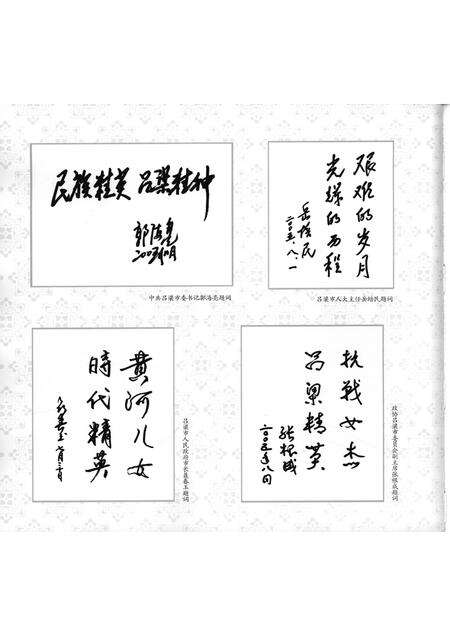 民族精英 吕梁精神
郭海亮
中共吕梁市委书记郭海亮题词
艰难的岁月
光辉的历程
岳拴民
二〇〇五.八.一
吕梁市人大主任岳拴民题词
黄河儿女
時代精英
吕梁市人民政府市长聂春玉题词
抗战女杰
吕梁精英
张根成
二〇〇五年八旬
政协吕梁市委员会副主席张根成题词